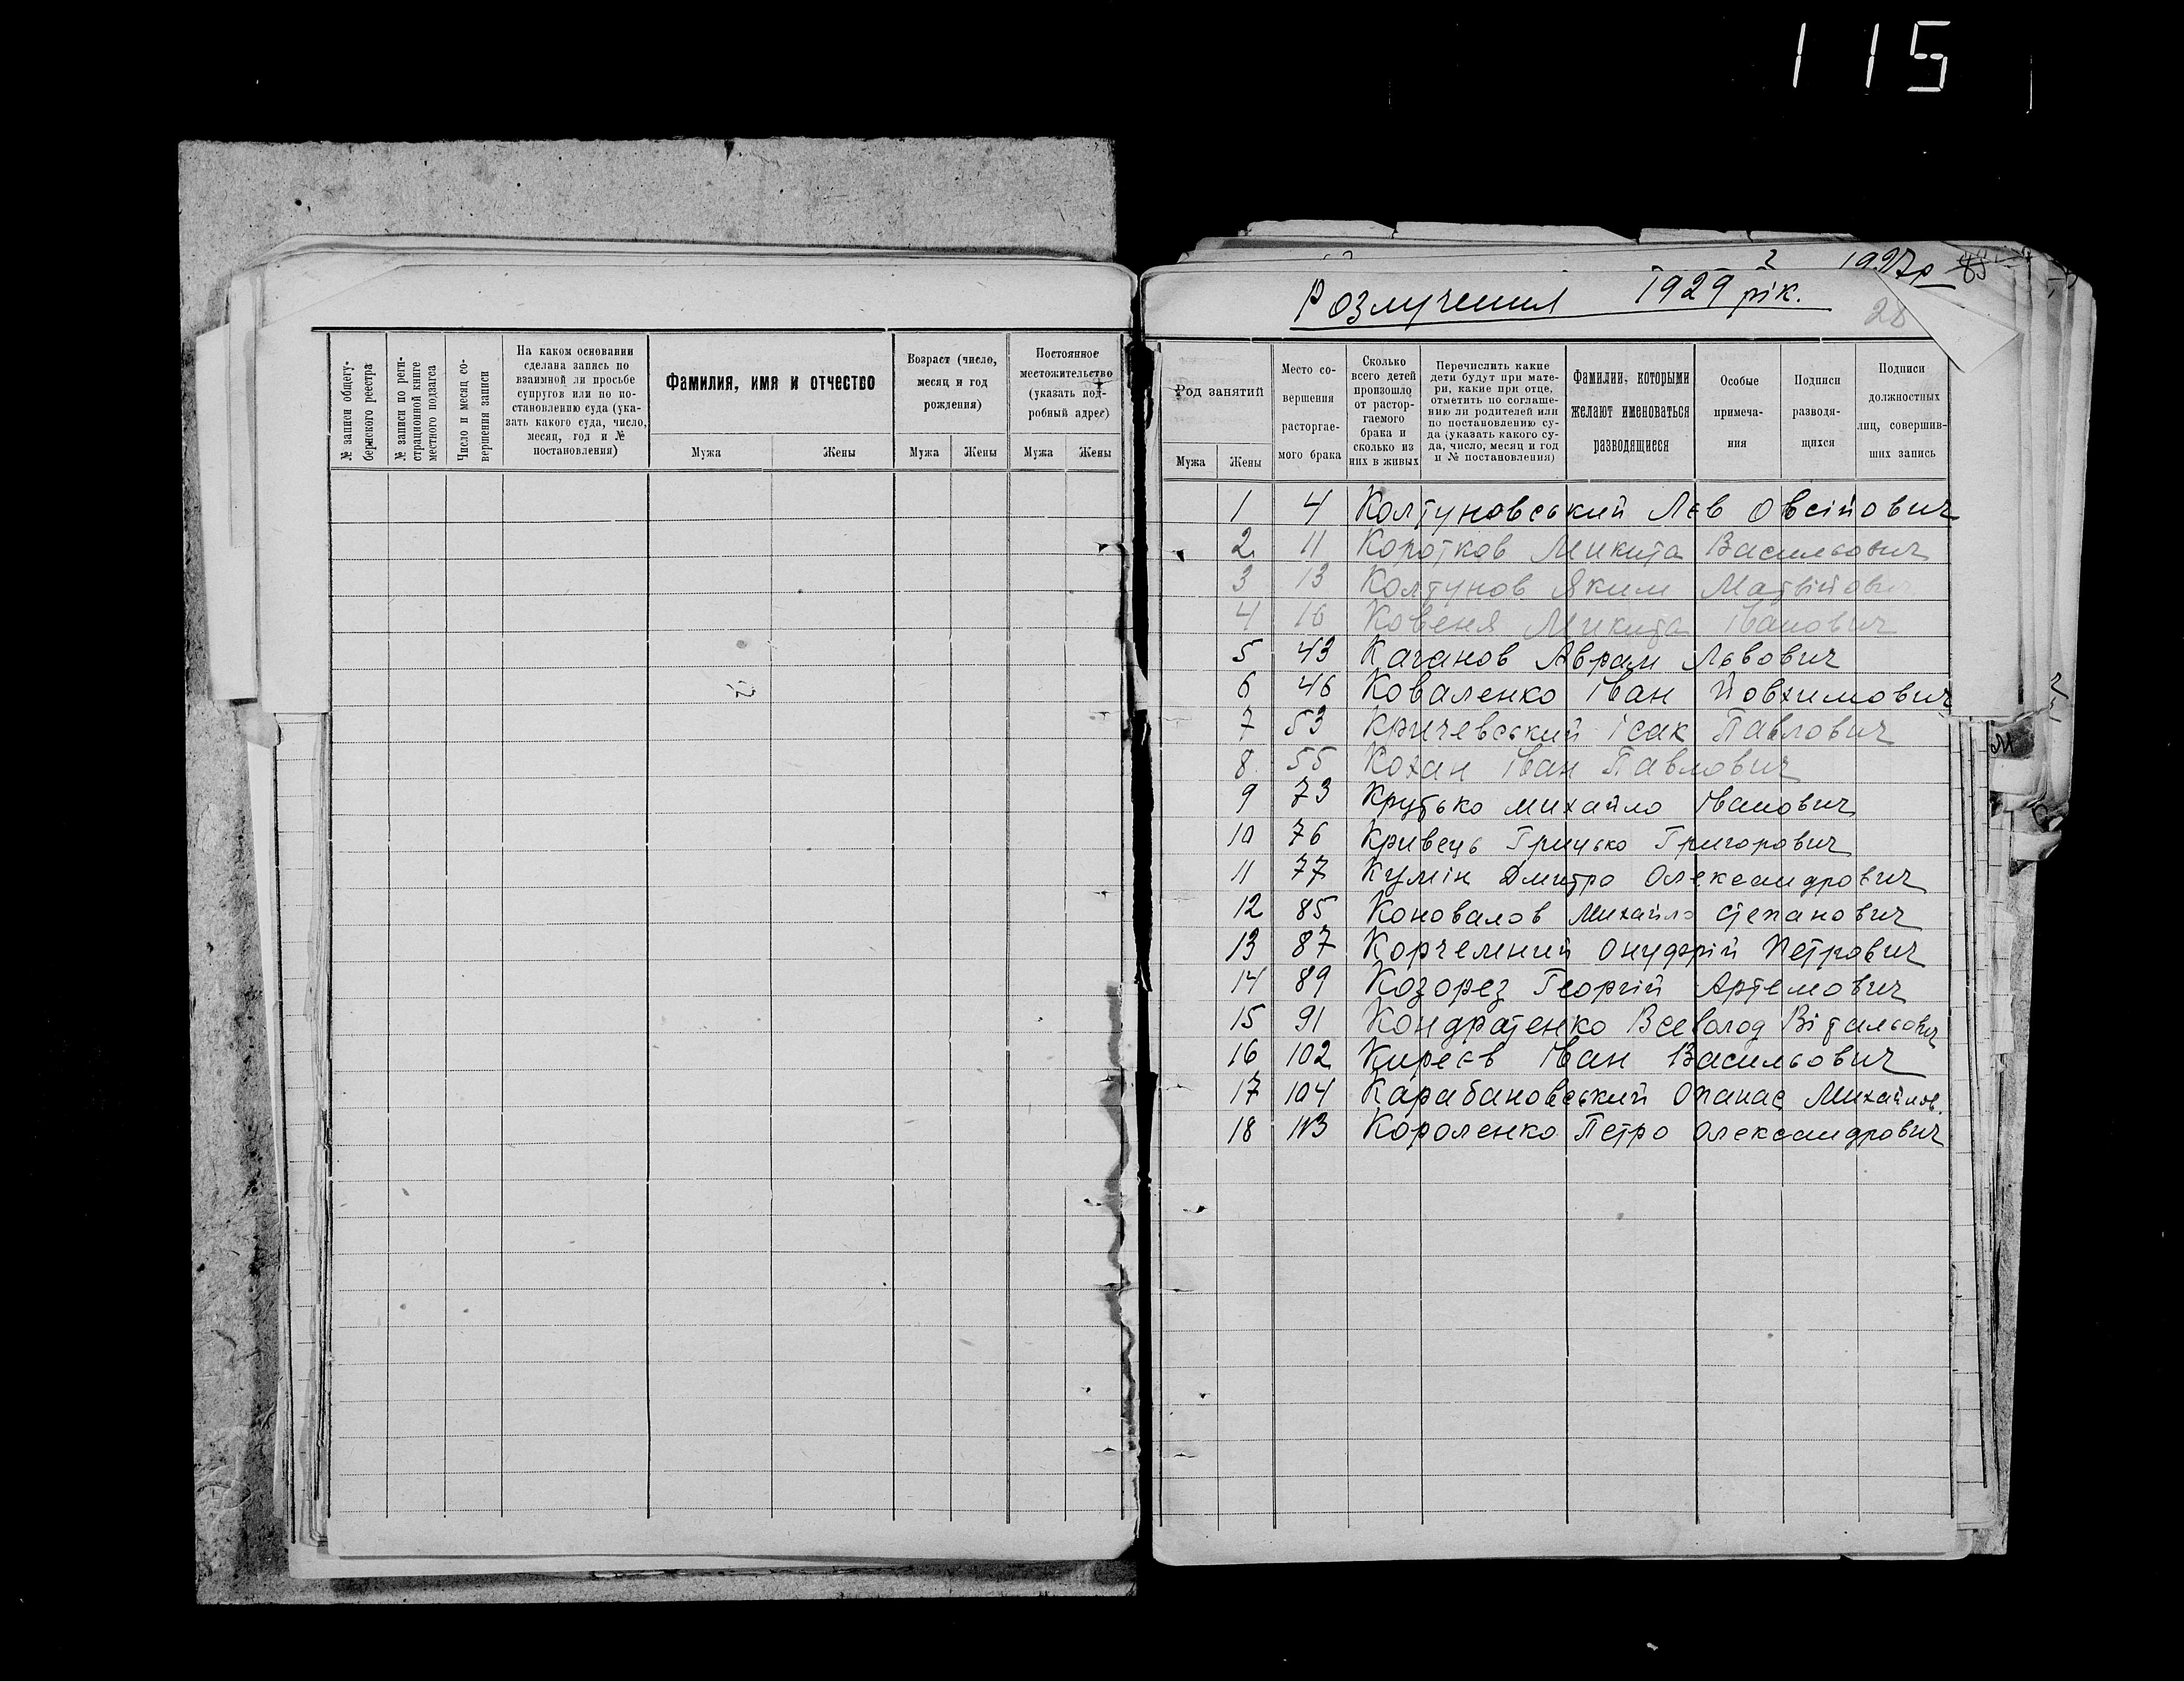 115
1927р
85
Розлучення 1929 рік.
28
№ записи общегу-
бернского реестра
№ записи по реги-
страционной книге
местного подзагса
Число и месяц со-
вершения записи
На каком основании
сделана запись по
взаимной ли просьбе
супругов или по по-
становлению суда (ука-
зать какого суда, число,
месяц, год и №
постановления)
Фамилия, имя и отчество
Мужа Жены
Возраст (число,
месяц и год
рождения)
Мужа Жены
Постоянное
местожительство
(указать под-
робный адрес)
Мужа Жены
Род занятий
Мужа Жены
Место со-
вершения
расторгае-
мого брака
Сколько
всего детей
произошло
от растор-
гаемого
брака и
сколько из
них в живых
Перечислить какие
дети будут при мате-
ри, какие при отце,
отметить по соглаше-
нию ли родителей или
по постановлению су-
да (указать какого су-
да, число, месяц и год
и № постановления)
Фамилии, которыми
желают именоваться
разводящиеся
Особые
примеча-
ния
Подписи
разводя-
щихся
Подписи
должностных
лиц, совершив-
ших запись
1 4 Колтуновський Лєв Овсійович
2 11 Коротков Микита Васильович
3 13 Колтунов Яким Матвійович
4 16 Ковеня Микита Іванович
5 43 Каганов Аврам Львович
6 46 Коваленко Іван Йовхимович
7 53 Кричевський Ісак Павлович
8 55 Кохан Іван Павлович
9 73 Крутько Михайло Іванович
10 76 Кривець Грицько Григорович
11 77 Кумін Дмитро Олександрович
12 85 Коновалов Михайло Степанович
13 87 Корчемний Онуфрій Петрович
14 89 Козорез Георгій Артемович
15 91 Кондратенко Всеволод Вітальович
16 102 Киреєв Іван Васильович
17 104 Карабановський Опанас Михайлов.
18 113 Короленко Петро Олександрович